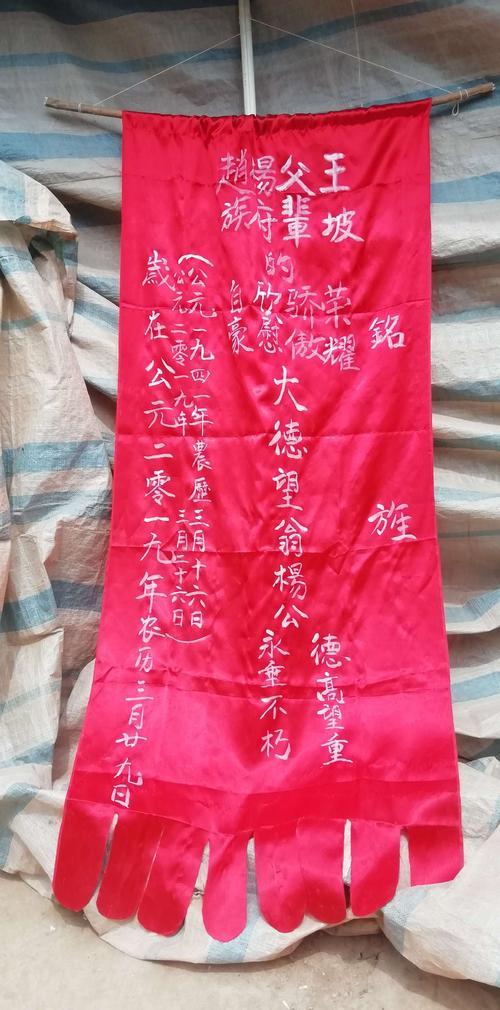 銘旌
王坡
父輩
楊府
趙族
的
荣耀
骄傲
欣慰
自豪
大德望翁楊公
德高望重
永垂不朽
（公元一九四一年農歷三月十六日
公元二零一九年三月二十六日）
歲在公元二零一九年农历三月廿九日